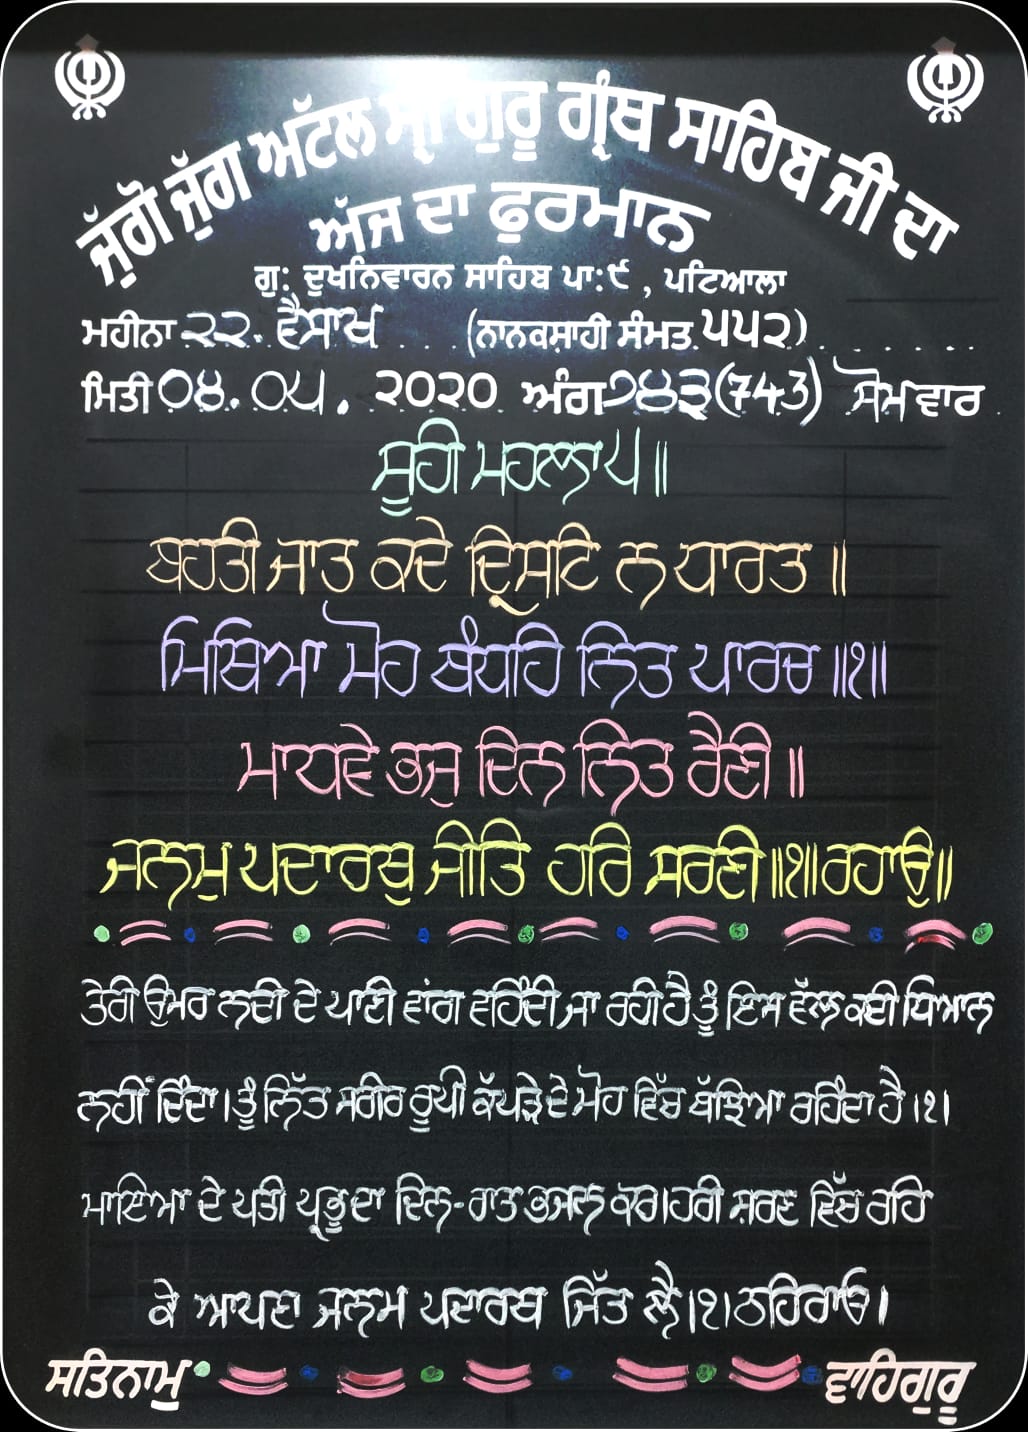 ਜੁੱਗੋ ਜੁੱਗ ਅਟੱਲ ਸ੍ਰੀ ਗੁਰੂ ਗ੍ਰੰਥ ਸਾਹਿਬ ਜੀ ਦਾ
ਅੱਜ ਦਾ ਫੁਰਮਾਨ
ਗੁ: ਦੁਖਨਿਵਾਰਨ ਸਾਹਿਬ ਪਾ:੯ , ਪਟਿਆਲਾ
ਮਹੀਨਾ ੨੨. ਵੈਸਾਖ (ਨਾਨਕਸ਼ਾਹੀ ਸੰਮਤ ੫੫੨)
ਮਿਤੀ ੦੪. ੦੫. ੨੦੨੦ ਅੰਗ ੭੪੩(743) ਸੋਮਵਾਰ
ਸੂਹੀ ਮਹਲਾ ੫॥
ਬਹਤੀ ਜਾਤ ਕਦੇ ਦ੍ਰਿਸਟਿ ਨ ਧਾਰਤ ॥
ਮਿਥਿਆ ਮੋਹ ਬੰਧਹਿ ਨਿਤ ਪਾਰਚ ॥੧॥
ਮਾਧਵੇ ਭਜੁ ਦਿਨ ਨਿਤ ਰੈਣੀ ॥
ਜਨਮੁ ਪਦਾਰਥੁ ਜੀਤਿ ਹਰਿ ਸਰਣੀ ॥੧॥ ਰਹਾਉ॥
ਤੇਰੀ ਉਮਰ ਨਦੀ ਦੇ ਪਾਣੀ ਵਾਂਗ ਵਹਿੰਦੀ ਜਾ ਰਹੀ ਹੈ ਤੂੰ ਇਸ ਵੱਲ ਕਦੀ ਧਿਆਨ
ਨਹੀਂ ਦਿੰਦਾ। ਤੂੰ ਨਿੱਤ ਸਰੀਰ ਰੂਪੀ ਕੱਪੜੇ ਦੇ ਮੋਹ ਵਿੱਚ ਬੱਝਿਆ ਰਹਿੰਦਾ ਹੈ ।੧।
ਮਾਇਆ ਦੇ ਪਤੀ ਪ੍ਰਭੂ ਦਾ ਦਿਨ-ਰਾਤ ਭਜਨ ਕਰ।ਹਰੀ ਸ਼ਰਣ ਵਿੱਚ ਰਹਿ
ਕੇ ਆਪਣਾ ਜਨਮ ਪਦਾਰਥ ਜਿੱਤ ਲੈ।੧।ਠਹਿਰਾਓ।
ਸਤਿਨਾਮੁ ਵਾਹਿਗੁਰੂ